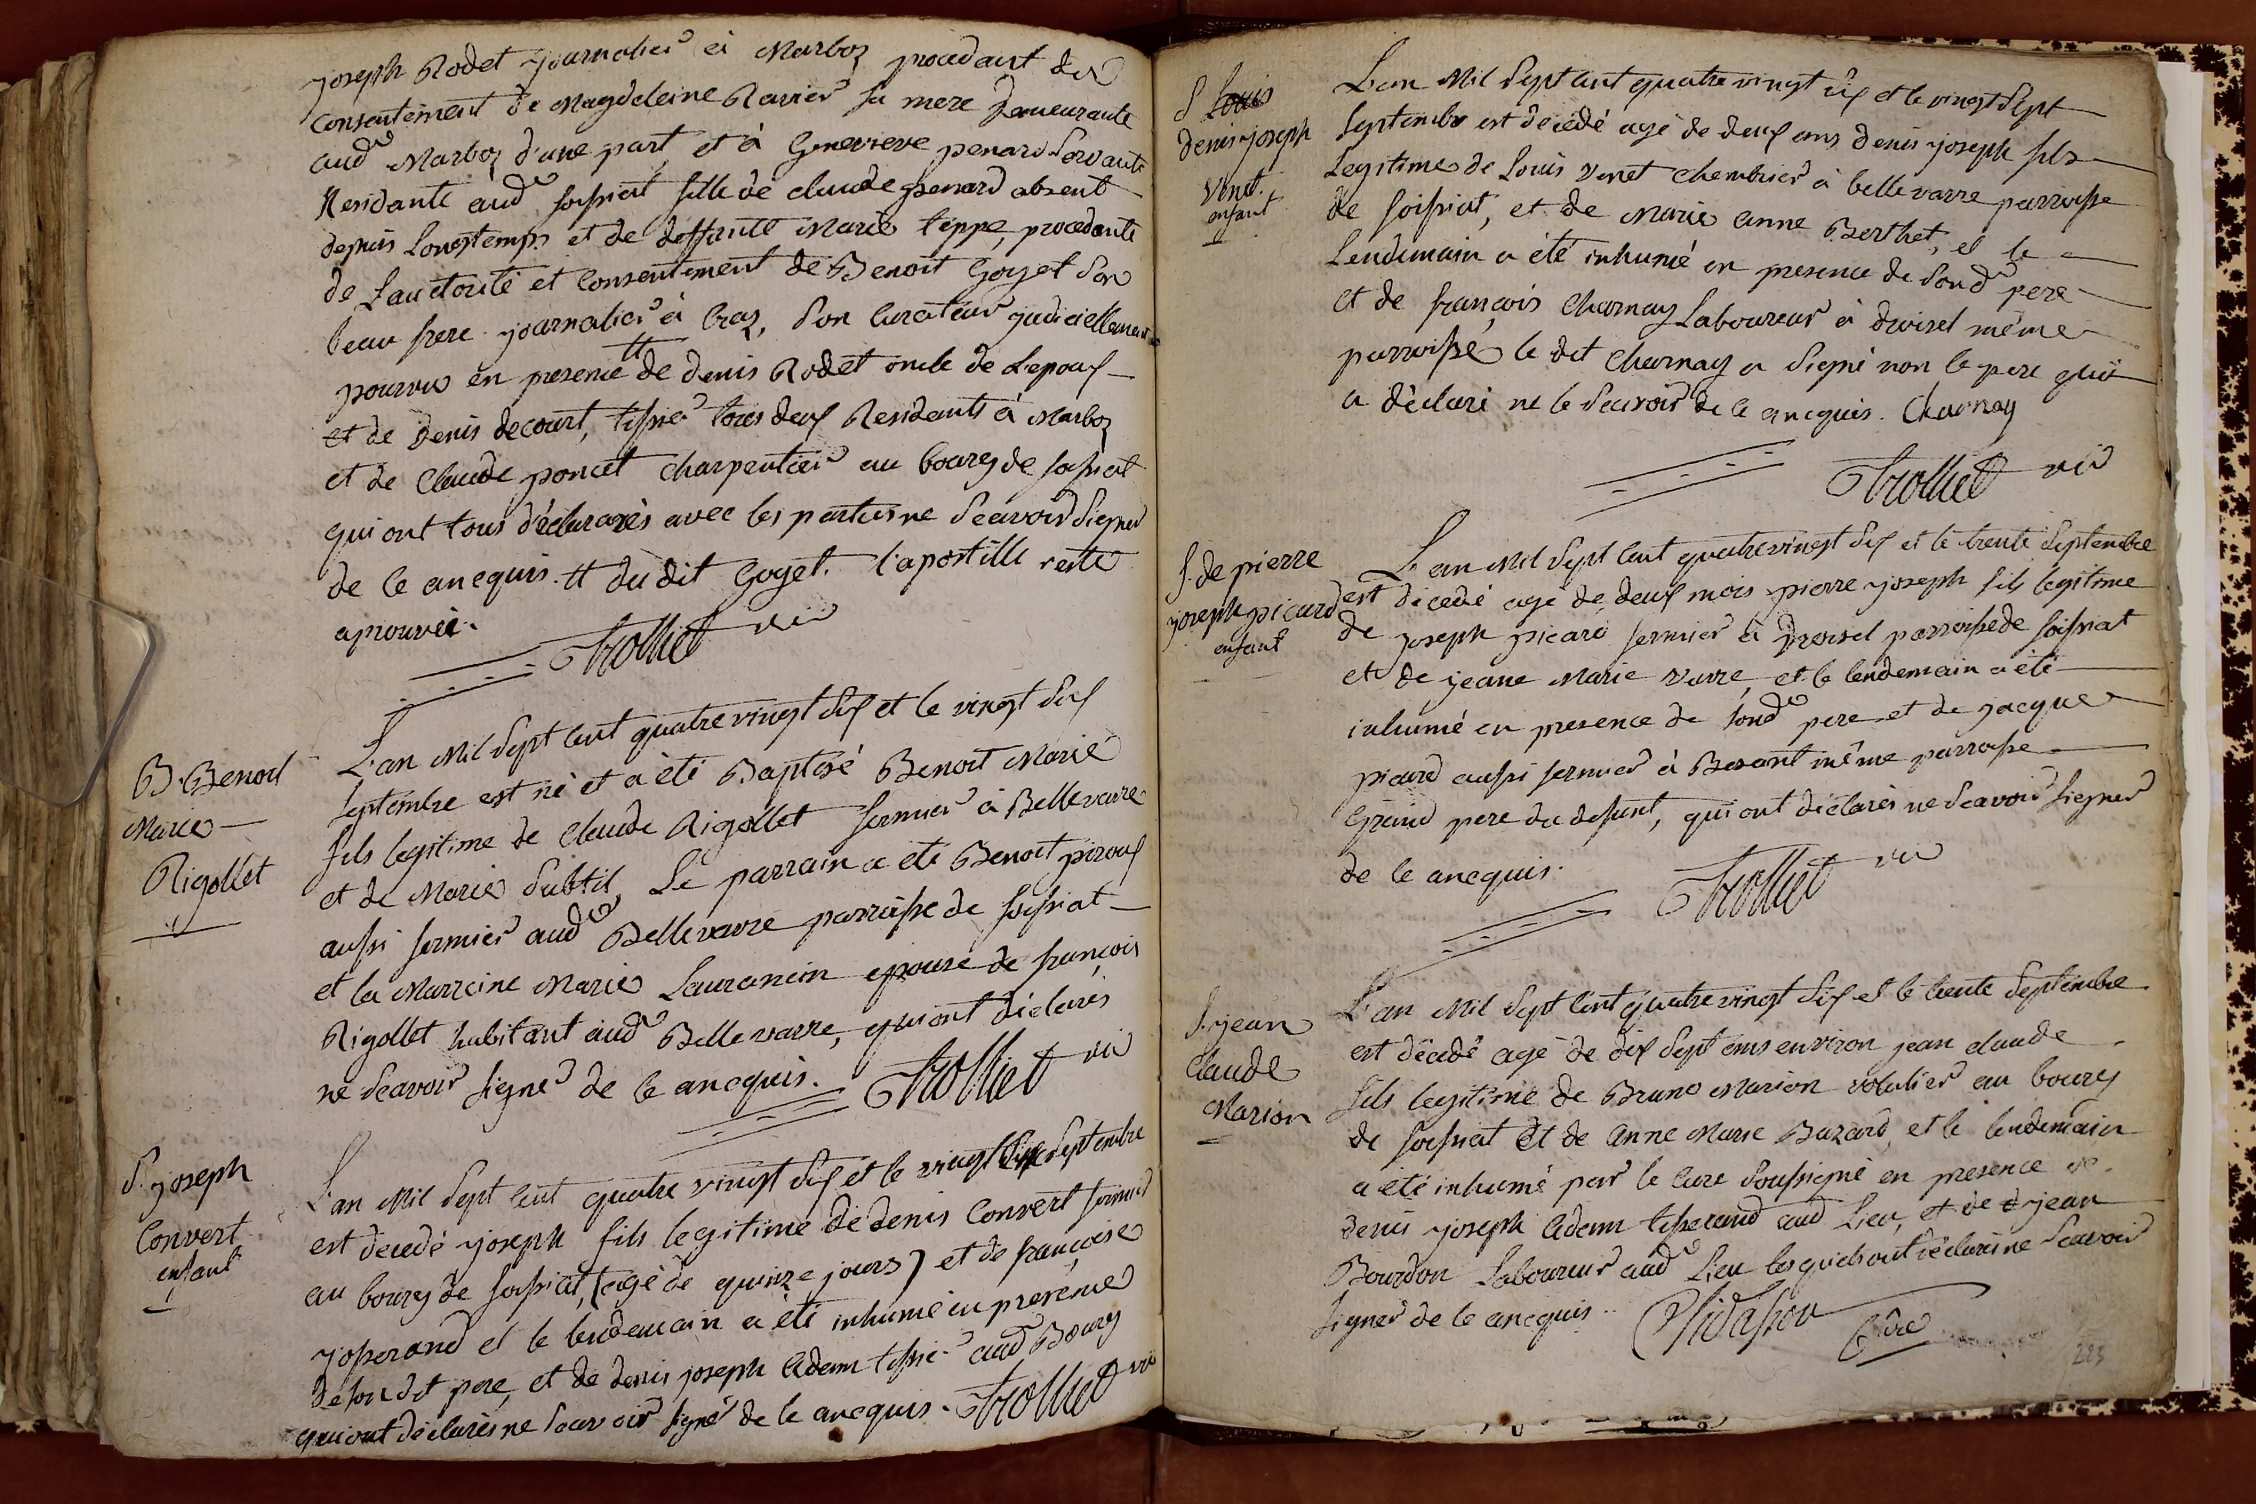 joseph Rodet journalier à Marboz procedant du
consentement de Magdeleine Ravier sa mere Demeurante
aud Marboz d'une part, et à Genevieve penard servante
Residante aud foissiat fille de claude penard absent
depuis Longtemps et de deffunte Marie teppe, procedante
de Lauctorité et Consentement de Benoit Goyet son
beau frere journalier à Cras, son curateur judiciellement
pourvu en presence tt de denis Rodet oncle de Lepoux
et de Denis decourt, tissier tous deux Residents à Marboz
et de Claude poncet charpentier au bourg de foissiat
qui ont tous déclarés avec les parties ne Scavoir Signer
de ce ancquis. tt du dit Goyet. l'apostille reste
aprouvée.
Trolliet vic
B. Benoit
Marie
Rigollet
L'an Mil Sept Cent quatre vingt dix et le vingt six
Septembre est né et a été Baptisé Benoit Marie
fils legitime de Claude Rigollet fermier à Bellevavre
et de Marie Subtil, Le parrain a été Benoit piroux
aussi fermier aud Bellevavre parroisse de foissiat
et la Marraine Marie Laurancin epouse de françois
Rigollet habitant aud Bellevavre, qui ont déclarés
ne Scavoir signer de ce ancquis.
Trolliet vic
S. joseph
Convert
enfant
L'an Mil Sept Cent quatre vingt dix et le vingt Septembre
est decedé joseph fils legitime de denis Convert fermier
au bourg de foissiat, (agé de quinze jours) et de françoise
josserand et le lendemain a été inhumé en presence
de son dit pere, et de denis joseph Adam tissier aud Bourg
qui ont déclarés ne Scavoir signé de ce ancquis.
Trolliet vic
S Louis
denis joseph
Vinet
enfant
L'an Mil Sept Cent quatre vingt dix et le vingt Sept
Septembre est décedé agé de deux ans denis joseph fils
Legitime de Louis Vinet chambrier à bellevavre parroisse
de foissiat, et de Marie Anne Berthet, et le
Lendemain a été inhumé en presence de Sond pere
et de françois Charnay Laboureur à même
parroisse le dit Charnay a Signé non le pere qui
a déclaré ne le Scavoir de ce ancquis. Charnay
Trolliet vic
S. de pierre
joseph picard
enfant
L'an Mil Sept Cent quatre vingt dix et le trente Septembre
est décedé agé de deux mois pierre joseph fils legitime
de joseph picard fermier à parroisse de foissiat
et de jeane Marie Vavre, et le lendemain a été
inhumé en presence de Sond pere et de jacque
picard aussi fermier à même parroisse
Grand pere du defunt, qui ont déclarés ne Scavoir Signer
de ce ancquis.
Trolliet vic
S. jean
Claude
Marion
L'an Mil Sept Cent quatre vingt dix et le trente Septembre
est décedé agé de dix Sept ans environ jean claude
fils legitime de Bruno Marion au bourg
de foissiat et de Anne Marie Buzard, et le lendemain
a été inhumé par le Curé Soussigné en presence de
denis joseph Adam tisserand aud Lieu, et de jean
Bourdon Laboureur aud Lieu lesquels ont déclaré ne Scavoir
signer de ce ancquis.
Curé